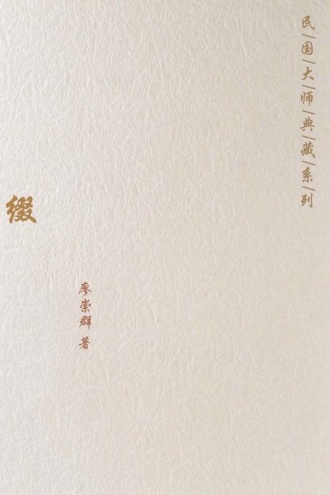 民国大师典藏系列
缀
廖崇群 著